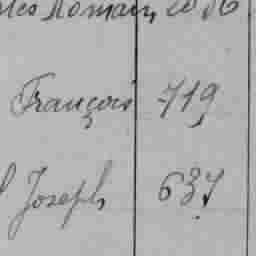 Romain
François 719
Joseph 637